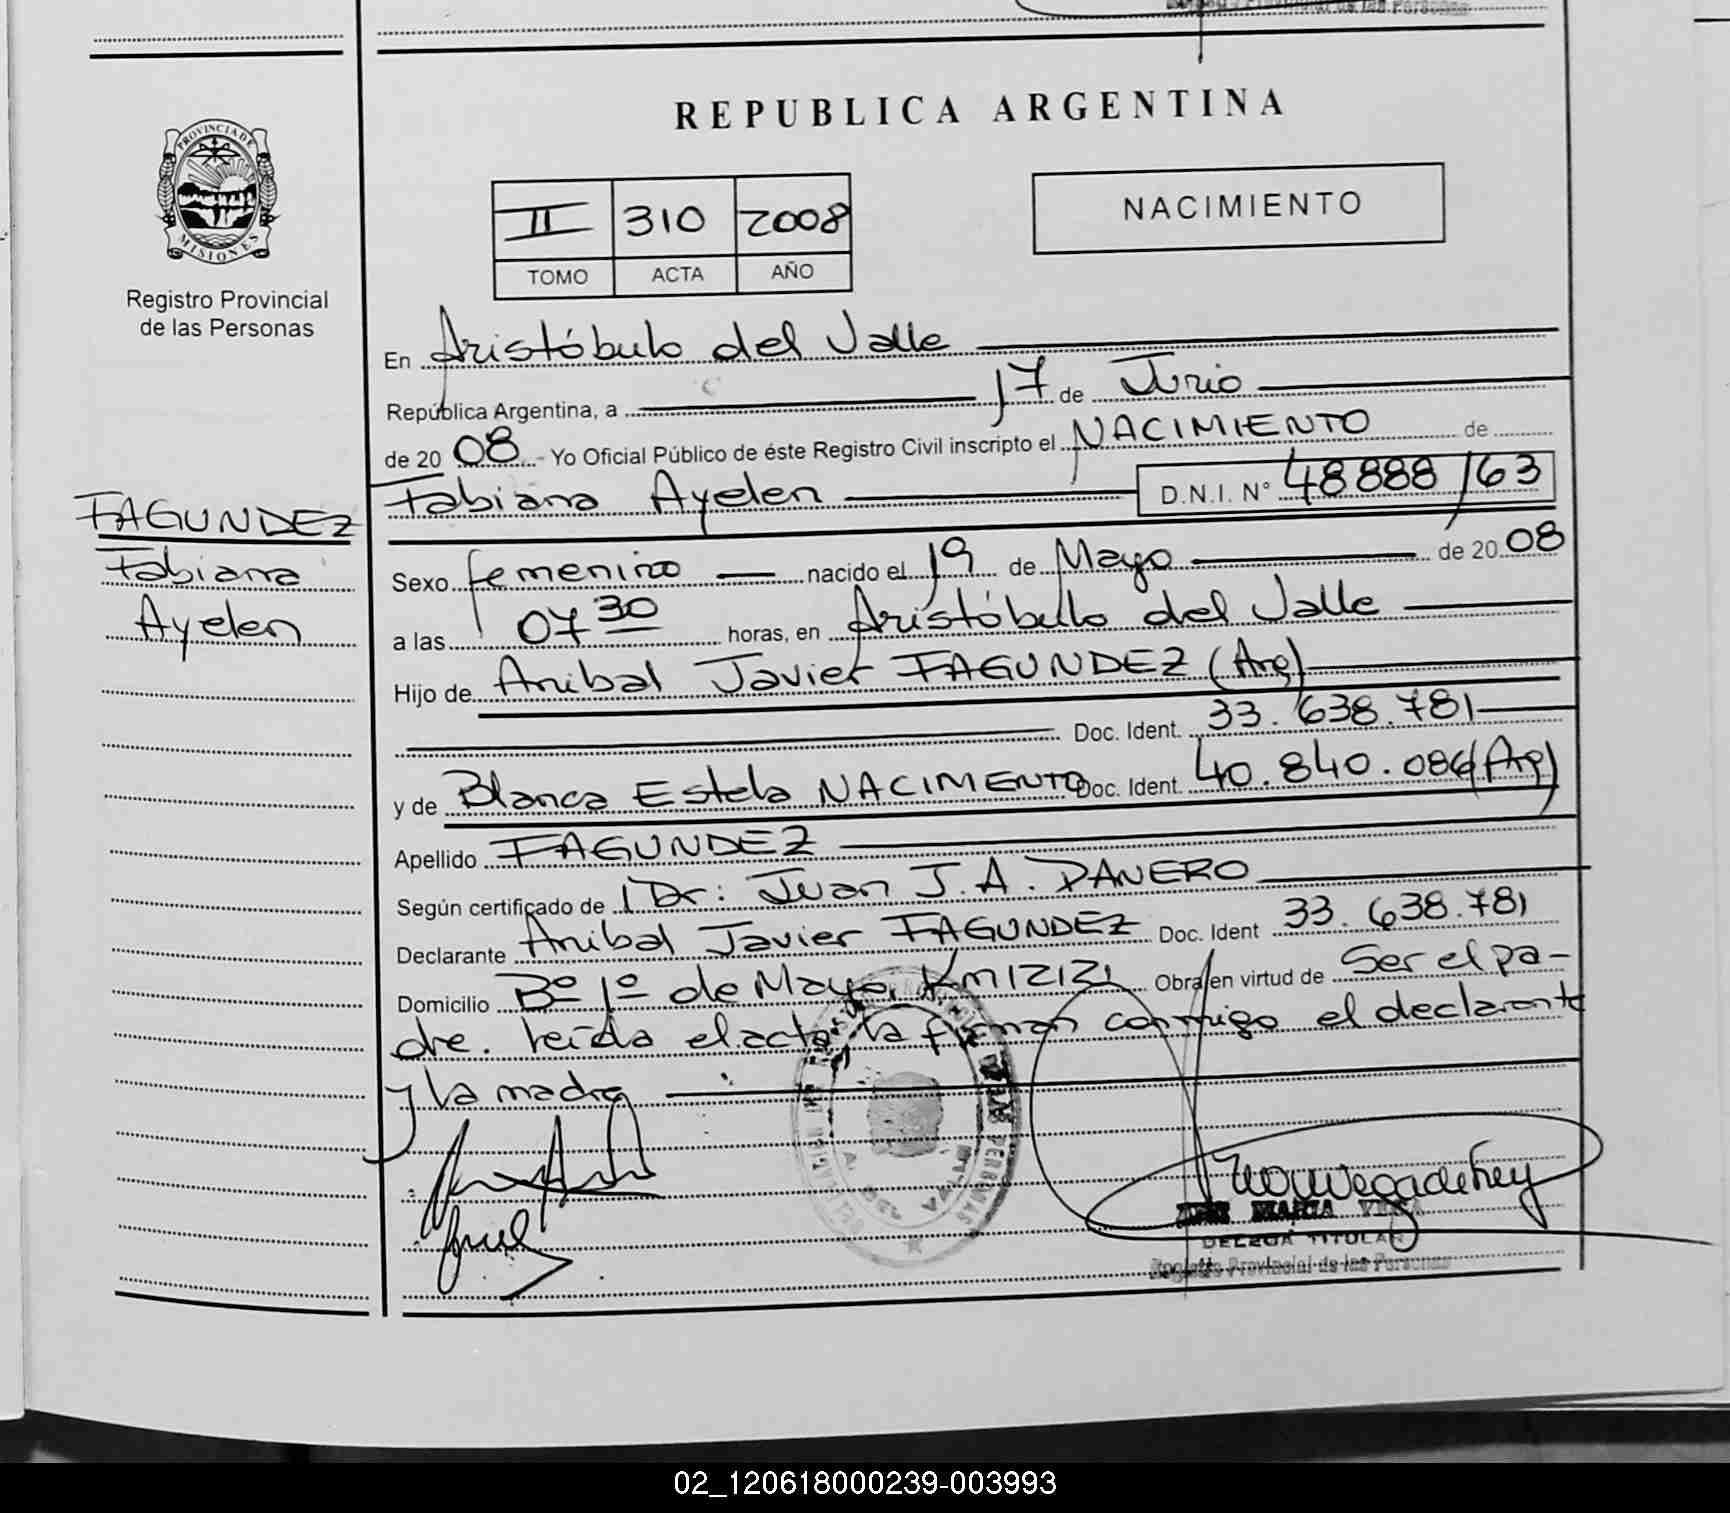 PROVINCIA DE
MISIONES
Registro Provincial
de las Personas
FAGUNDEZ
Fabiana
Ayelen
REPUBLICA ARGENTINA
II 310 2008
TOMO ACTA AÑO
NACIMIENTO
En Aristóbulo del Valle
República Argentina, a 17 de Junio
de 20 08 - Yo Oficial Público de éste Registro Civil inscripto el NACIMIENTO de
Fabiana Ayelen D.N.I. N° 48888163
Sexo femenino nacido el 19 de Mayo de 20 08
a las 07 30 horas, en Aristóbulo del Valle
Hijo de Anibal Javier FAGUNDEZ (Arg)
Doc. Ident. 33.638.781
y de Blanca Estela NACIMENTO Doc. Ident. 40.840.086 (Arg)
Apellido FAGUNDEZ
Según certificado de Dr: Juan J.A. DANERO
Declarante Anibal Javier FAGUNDEZ Doc. Ident 33.638.781
Domicilio Bº 1º de Mayo, Km Obra en virtud de Ser el pa-
dre. leída el acta, la firman conmigo el declarante
y la madre
MARIA VEGA
TITULAR
Registro Provincial de las Personas
02_120618000239-003993